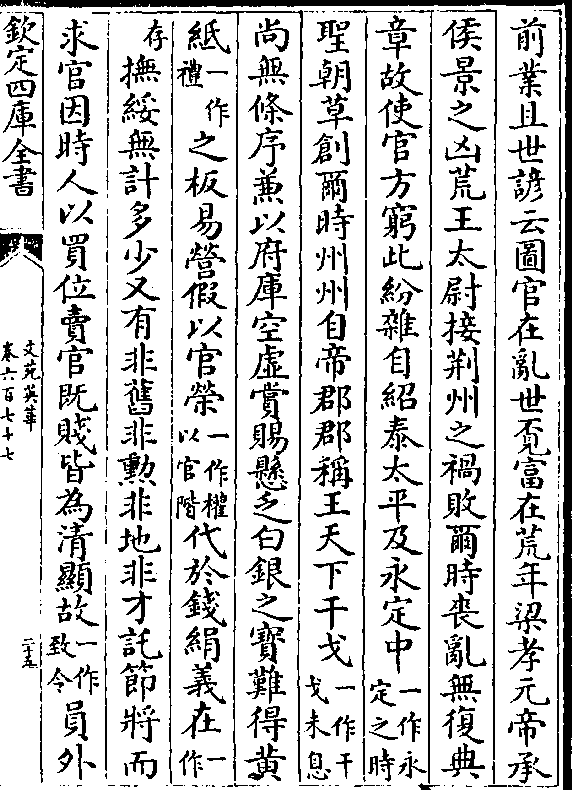 前業且世諺云圖官在亂世覔富在荒年梁孝元帝承
侯景之凶荒王太尉接荆州之禍敗爾時喪亂無復典
章故使官方窮此紛雜自紹泰太平及永定中一作永定之時
聖朝草創爾時州州自帝郡郡稱王天下干戈一作干戈未息
尚無條序兼以府庫空虛賞賜懸乏白銀之寶難得黄
紙一作禮之板易營假以官榮一作權以官階代於錢絹義在一作
存撫綏無計多少又有非舊非勲非地非才託節將而
求官因時人以買位賣官既賤皆為清顯故一作致令員外
欽定四庫全書
文苑英華
卷六百七十七
二十五